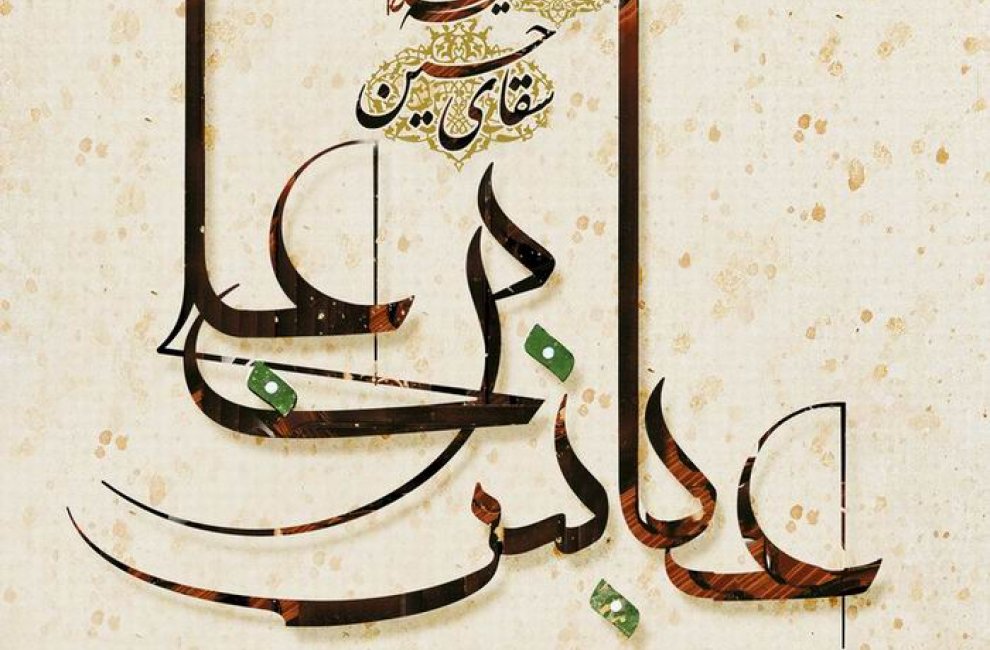 سقای حسین
عباس بن علی